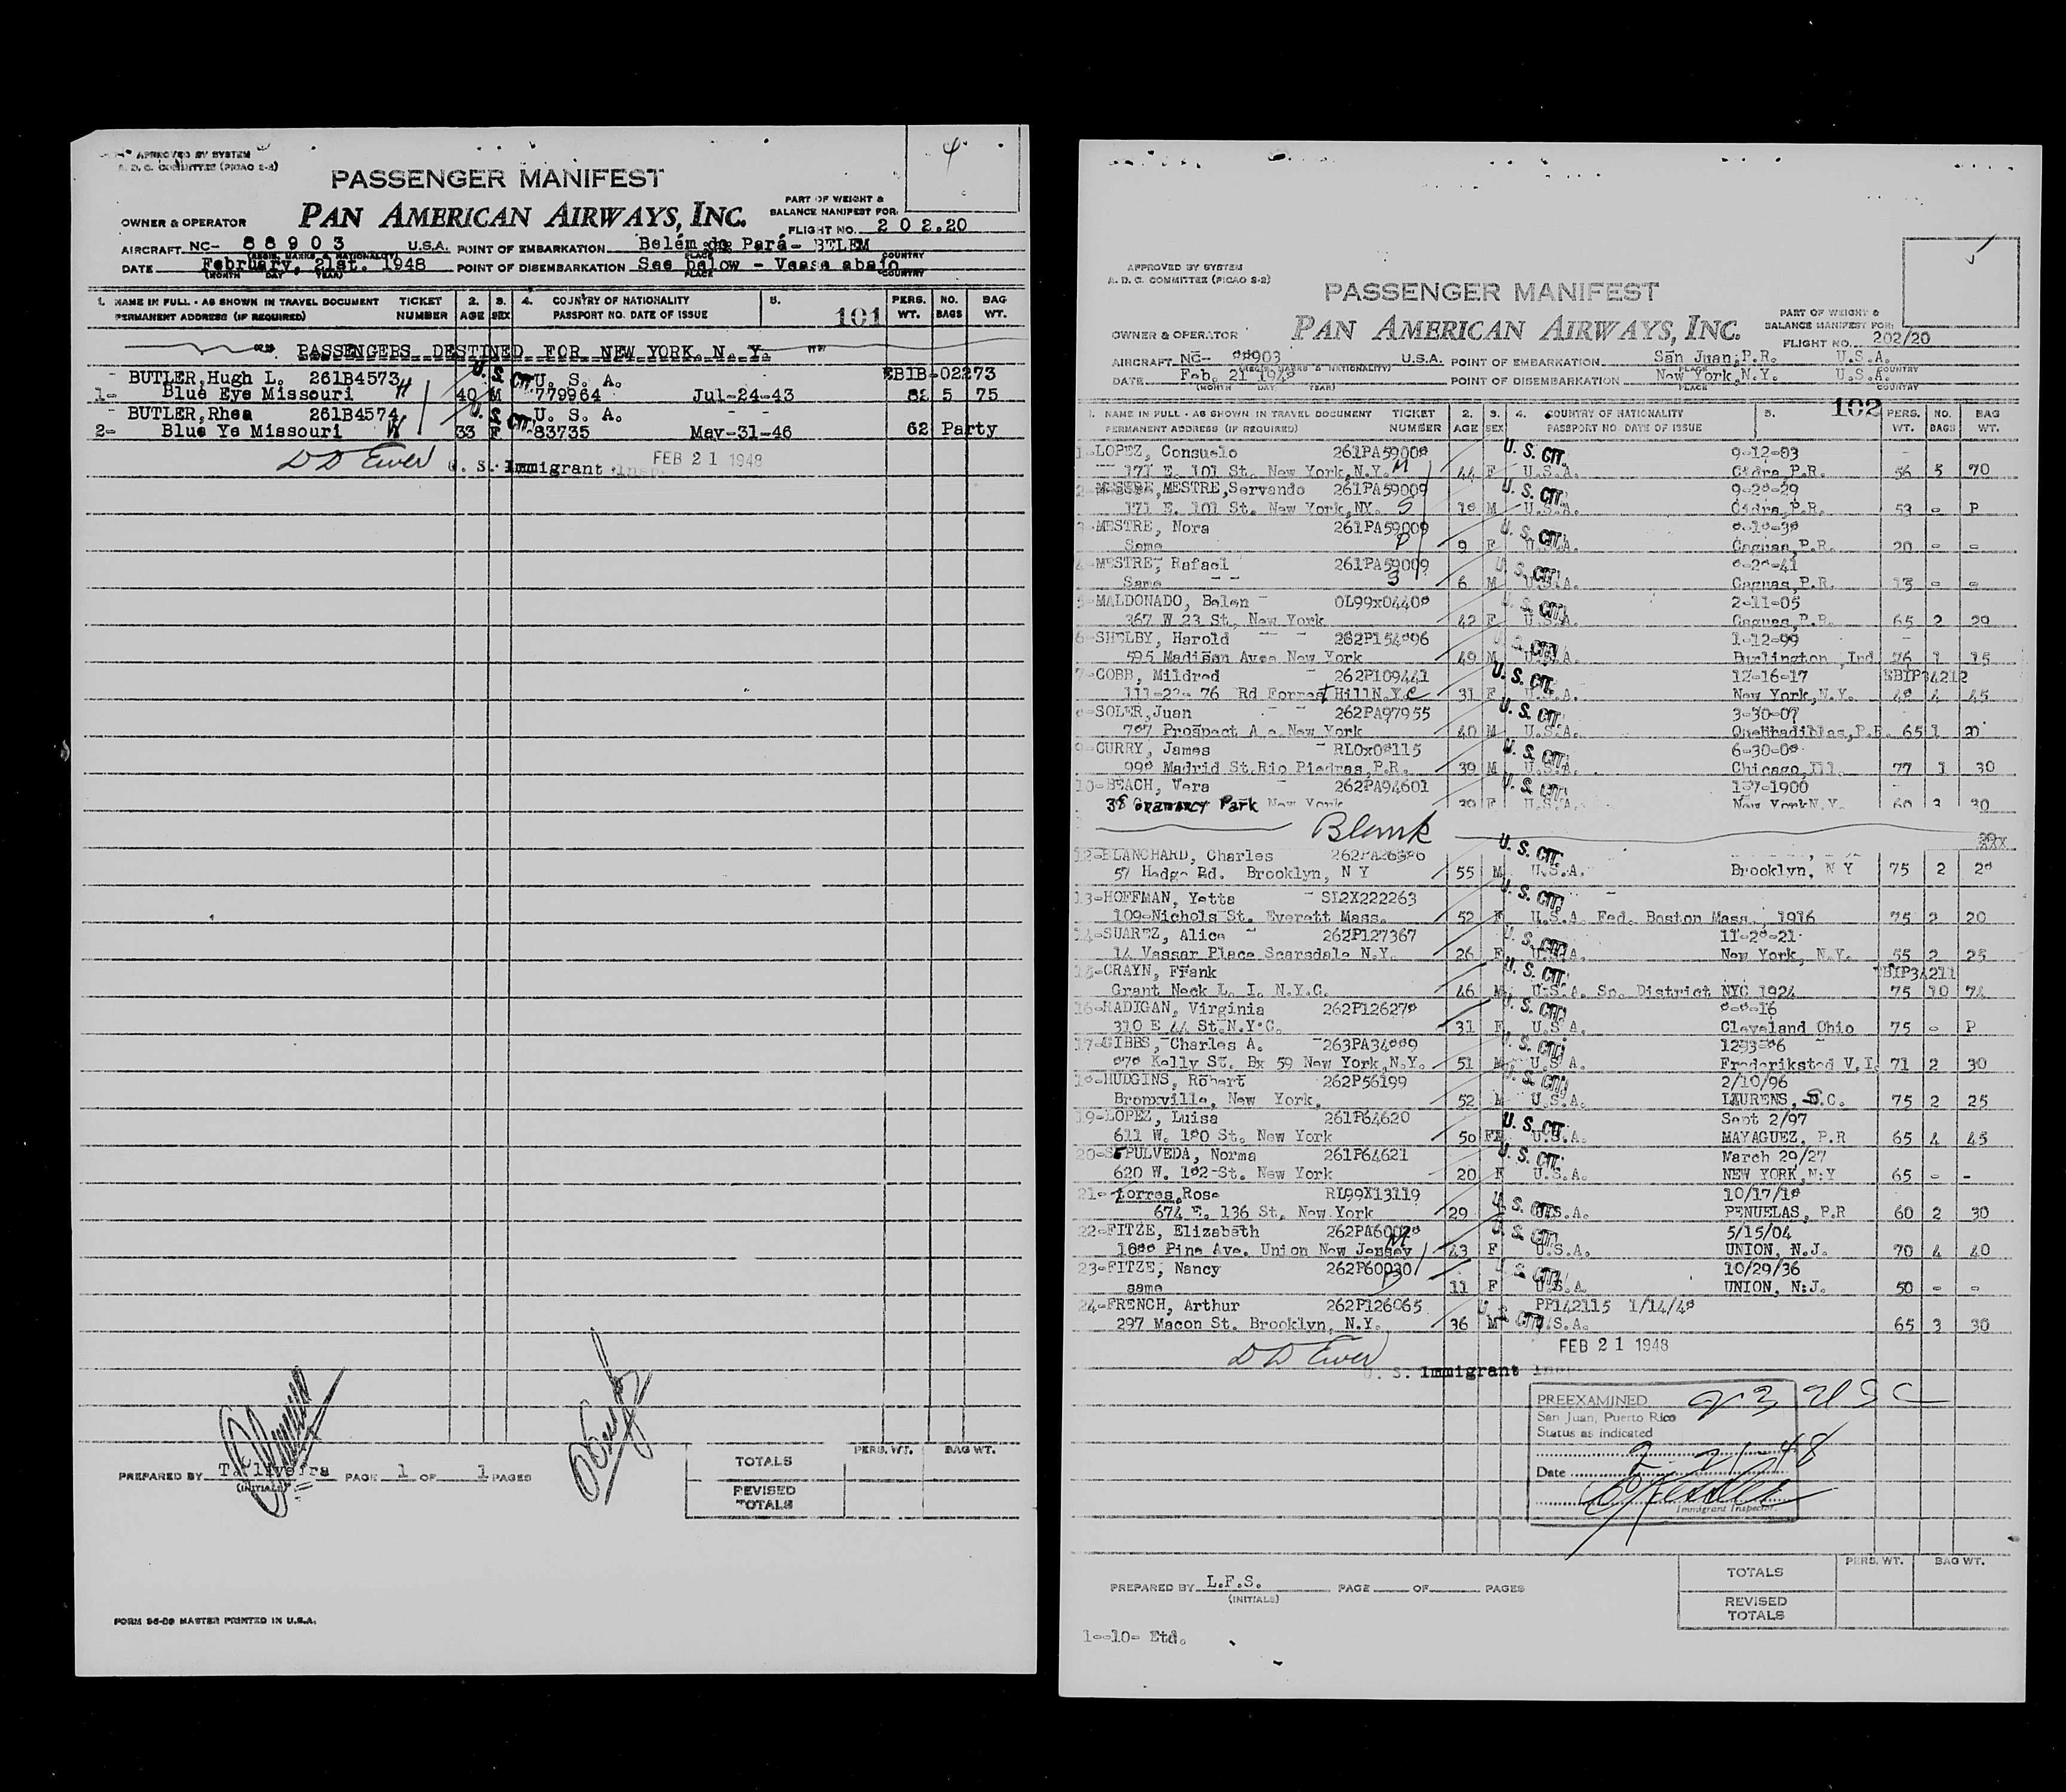 APPROVED BY SYSTEM
A. D. C. COMMITTEE (PICAO 2-2)
PASSENGER MANIFEST
PAN AMERICAN AIRWAYS, INC.
OWNER & OPERATOR
PART OF WEIGHT &
BALANCE MANIFEST FOR:
FLIGHT NO. 202.20
AIRCRAFT NC- 88903 U.S.A. POINT OF EMBARKATION Belém do Pará- BELEM
(REGIS. MARKS & NATIONALITY) PLACE COUNTRY
DATE February, 21st. 1948 POINT OF DISEMBARKATION See below - Vease abajo
(MONTH DAY YEAR) PLACE COUNTRY
1. NAME IN FULL - AS SHOWN IN TRAVEL DOCUMENT TICKET 2. 3. 4. COUNTRY OF NATIONALITY 5. PERS. NO. BAG
PERMANENT ADDRESS (IF REQUIRED) NUMBER AGE SEX PASSPORT NO. DATE OF ISSUE 101 WT. BAGS WT.
PASSENGERS DESTINED FOR NEW YORK. N. Y.
BUTLER,Hugh L. 261B4573 H U. S. CIT. U. S. A. EBIB-02273
1- Blue Eye Missouri 40 M 779964 Jul-24-43 82 5 75
BUTLER,Rhea 261B4574 W U. S. CIT. U. S. A.
2- Blue Ye Missouri 33 F 83735 May-31-46 62 Party
D D Ewer U. S. Immigrant Insp. FEB 21 1948
PREPARED BY PAGE 1 OF 1 PAGES
(INITIALS)
PERS. WT. BAG WT.
TOTALS
REVISED
TOTALS
FORM 96-D9 MASTER PRINTED IN U.S.A.
APPROVED BY SYSTEM
A. D. C. COMMITTEE (PICAO 2-2)
PASSENGER MANIFEST
PAN AMERICAN AIRWAYS, INC.
OWNER & OPERATOR
PART OF WEIGHT &
BALANCE MANIFEST FOR:
FLIGHT NO. 202/20
AIRCRAFT NC- 88903 U.S.A. POINT OF EMBARKATION San Juan,P.R. U.S.A.
(REGIS. MARKS & NATIONALITY) PLACE COUNTRY
DATE Feb. 21 1948 POINT OF DISEMBARKATION New York,N.Y. U.S.A.
(MONTH DAY YEAR) PLACE COUNTRY
1. NAME IN FULL - AS SHOWN IN TRAVEL DOCUMENT TICKET 2. 3. 4. COUNTRY OF NATIONALITY 5. 102 PERS. NO. BAG
PERMANENT ADDRESS (IF REQUIRED) NUMBER AGE SEX PASSPORT NO. DATE OF ISSUE WT. BAGS WT.
1-LOPEZ, Consuelo 261PA59008 U. S. CIT. 9-12-03
171 E. 101 St. New York,N.Y. M 44 F U.S.A. Cidra P.R. 56 5 70
2- MESTRE,Servando 261PA59009 U. S. CIT. 9-28-29
171 E. 101 St. New York,NY. S 18 M U.S.A. Cidra,P.R. 53 - P
3-MESTRE, Nora 261PA59009 U. S. CIT.
Same 9 F U.S.A. Caguas,P.R. 20 - -
4-MESTRE, Rafael 261PA59009 U. S. CIT. 8-28-41
Same S 6 M U.S.A. Caguas,P.R. 13 - -
5-MALDONADO, Belen OL99x04408 U. S. CIT. 2-11-05
367 W 23 St, New York 42 F U.S.A. Caguas,P.R. 65 2 29
6-SHELBY, Harold 262P154896 U. S. CIT. 1-12-99
595 Madison Ave. New York 49 M U.S.A. Burlington ,Ind 76 1 15
7-COBB, Mildred 262P109441 U. S. CIT. 12-16-17 EBIP34212
111-22- 76 Rd Forrest Hill N.Y.C 31 F U.S.A. New York,N.Y. 48 4 45
8-SOLER,Juan 262PA97955 U. S. CIT. 3-30-07
787 Prospect Ave.New York 40 M U.S.A. P.R. 65 1 20
9-CURRY, James RL0x08115 U. S. CIT. 6-30-08
998 Madrid St.Rio Piedras,P.R. 39 M U.S.A. Chicago,Ill. 77 1 30
10-BEACH, Vera 262PA94601 U. S. CIT. 1-7-1900
38 Gramercy Park New York 39 F U.S.A. New York N.Y. 60 3 30
Blank
12-BLANCHARD, Charles 262PA26386 U. S. CIT.
57 Hedge Rd. Brooklyn, N Y 55 M U.S.A. Brooklyn, N Y 75 2 28
13-HOFFMAN, Yetta SL2X222263 U. S. CIT.
109-Nichols St. Everett Mass. 52 F U.S.A. Fed. Boston Mass. 1916 75 2 20
14-SUAREZ, Alice 262P127367 U. S. CIT. 11-28-21
14 Vassar Place Scarsdale N.Y. 26 F U.S.A. New York, N.Y. 55 2 25
15-CRAYN, Frank U. S. CIT. EBIP34211
Grant Neck L. I. N.Y.C. 46 M U.S.A. So. District NYC 1924 75 10 74
16-RADIGAN, Virginia 262P126278 U. S. CIT. 8-8-16
310 E 44 St.N.Y.C. 31 F U.S.A. Cleveland Ohio 75 - P
17-GIBBS, Charles A. 263PA34889 U. S. CIT.
878 Kelly St. Bx 59 New York,N.Y. 51 M U.S.A. Frederiksted V.I. 71 2 30
18-HUDGINS, Robert 262P56199 U. S. CIT. 2/10/96
Bronxville, New York. 52 M U.S.A. LAURENS, S.C. 75 2 25
19-LOPEZ, Luisa 261P64620 U. S. CIT. Sept 2/97
611 W. 180 St. New York 50 FE U.S.A. MAYAGUEZ, P.R 65 4 45
20-SEPULVEDA, Norma 261P64621 U. S. CIT. March 29/27
620 W. 182-St. New York 20 F U.S.A. NEW YORK,N:Y 65 - -
21-torres,Rose RL99X13119 10/17/18
674 E. 136 St. New York 29 U. S. CIT. U.S.A. PENUELAS, P.R 60 2 30
22-FITZE, Elizabeth 262PA60028 U. S. CIT. 5/15/04
1688 Pine Ave. Union New Jersey M 43 F U.S.A. UNION, N.J. 70 4 40
23-FITZE, Nancy 262P60030 U. S. CIT. 10/29/36
same D 11 F U.S.A. UNION, N:J. 50 - -
24-FRENCH, Arthur 262P126065 U. S. CIT. PP142115 1/14/48
297 Macon St. Brooklyn, N.Y. 36 M U.S.A. 65 3 30
D D Ewer FEB 21 1948
U. S. Immigrant Insp.
PREEXAMINED 23 USC
San Juan, Puerto Rico
Status as indicated
Date 2-21-48
Immigrant Inspector.
PREPARED BY L.F.S. PAGE OF PAGES
(INITIALS)
PERS. WT. BAG WT.
TOTALS
REVISED
TOTALS
1--10- Etd.